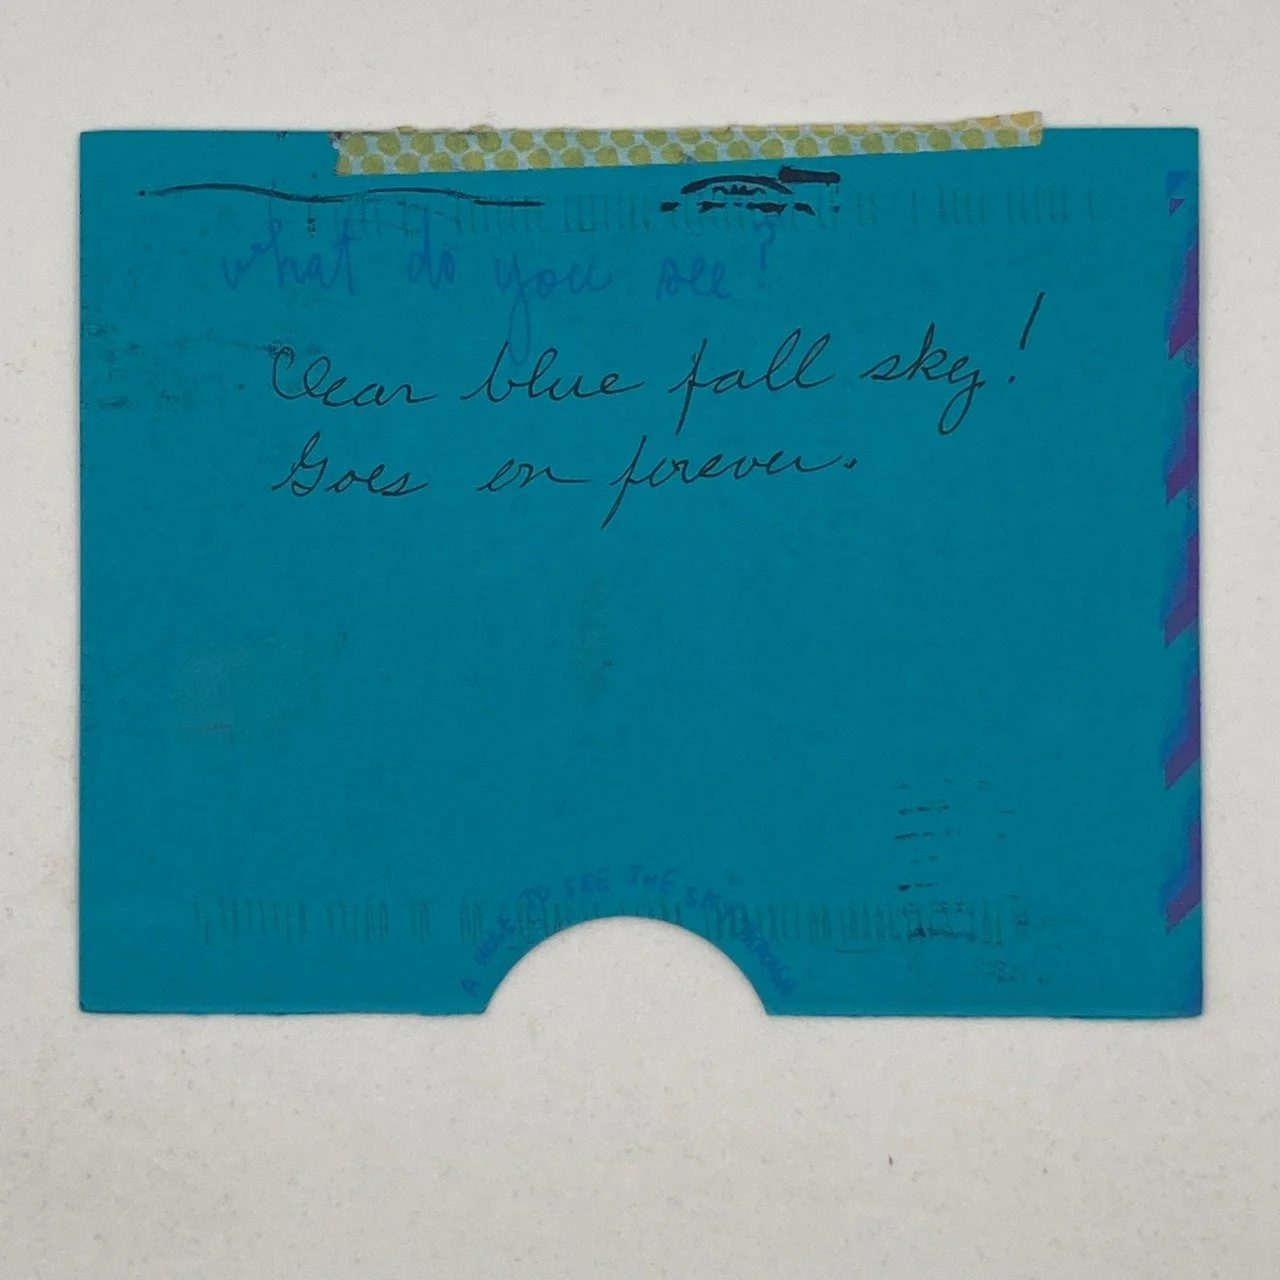 what do you see?
Clear blue fall sky!
Goes on forever.
A HOLE TO SEE THE SKY THROUGH